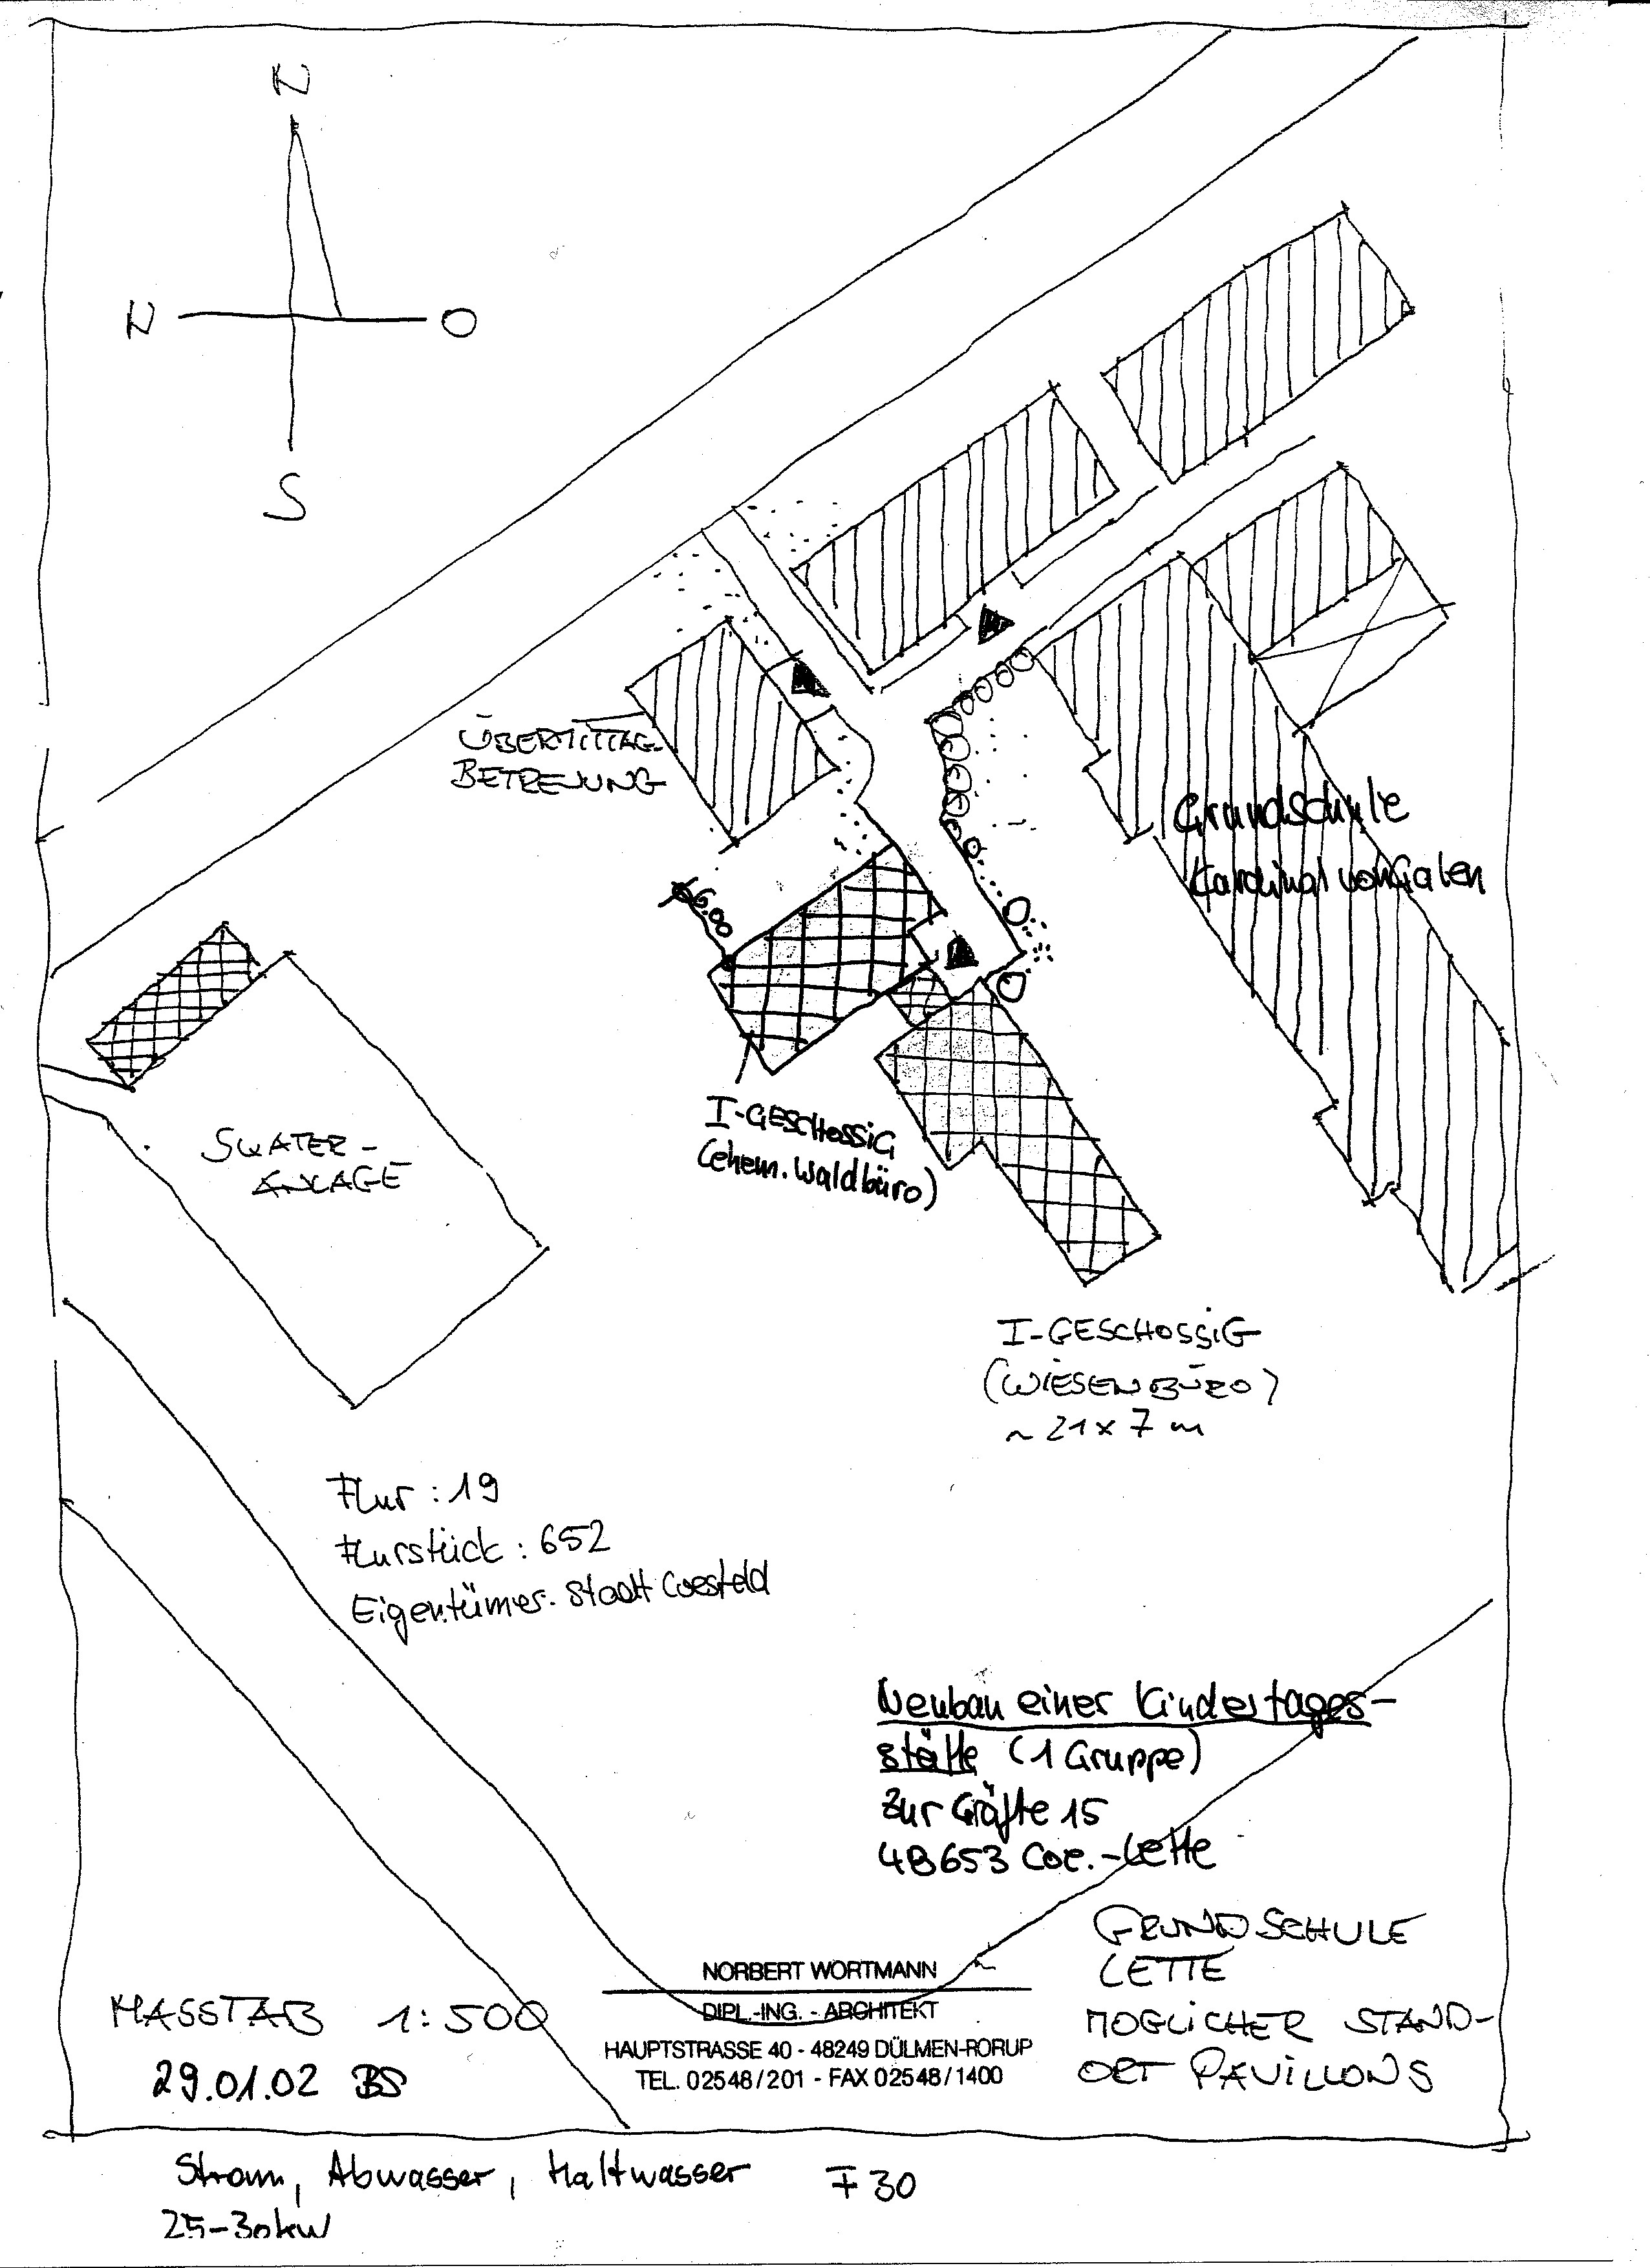 N
N
O
S
ÜBERMITTAG-
BETREUUNG
Grundschule
Kardinal von Galen
6.00
I-GESCHOSSIG
(ehem. Waldbüro)
SKATER-
ANLAGE
I-GESCHOSSIG
(WIESENBÜRO)
~ 21 x 7 m
Flur : 19
Flurstück : 652
Eigentümer: Stadt Coesfeld
Neubau einer Kindertages-
stätte (1 Gruppe)
Zur Gräfte 15
48653 Coe.-Lette
GRUNDSCHULE
LETTE
MÖGLICHER STAND-
ORT PAVILLONS
NORBERT WORTMANN
DIPL.-ING. - ARCHITEKT
HAUPTSTRASSE 40 - 48249 DÜLMEN-RORUP
TEL. 02548/201 - FAX 02548/1400
MASSTAB 1:500
29.01.02 BS
Strom, Abwasser, Kaltwasser F 30
25-30kW